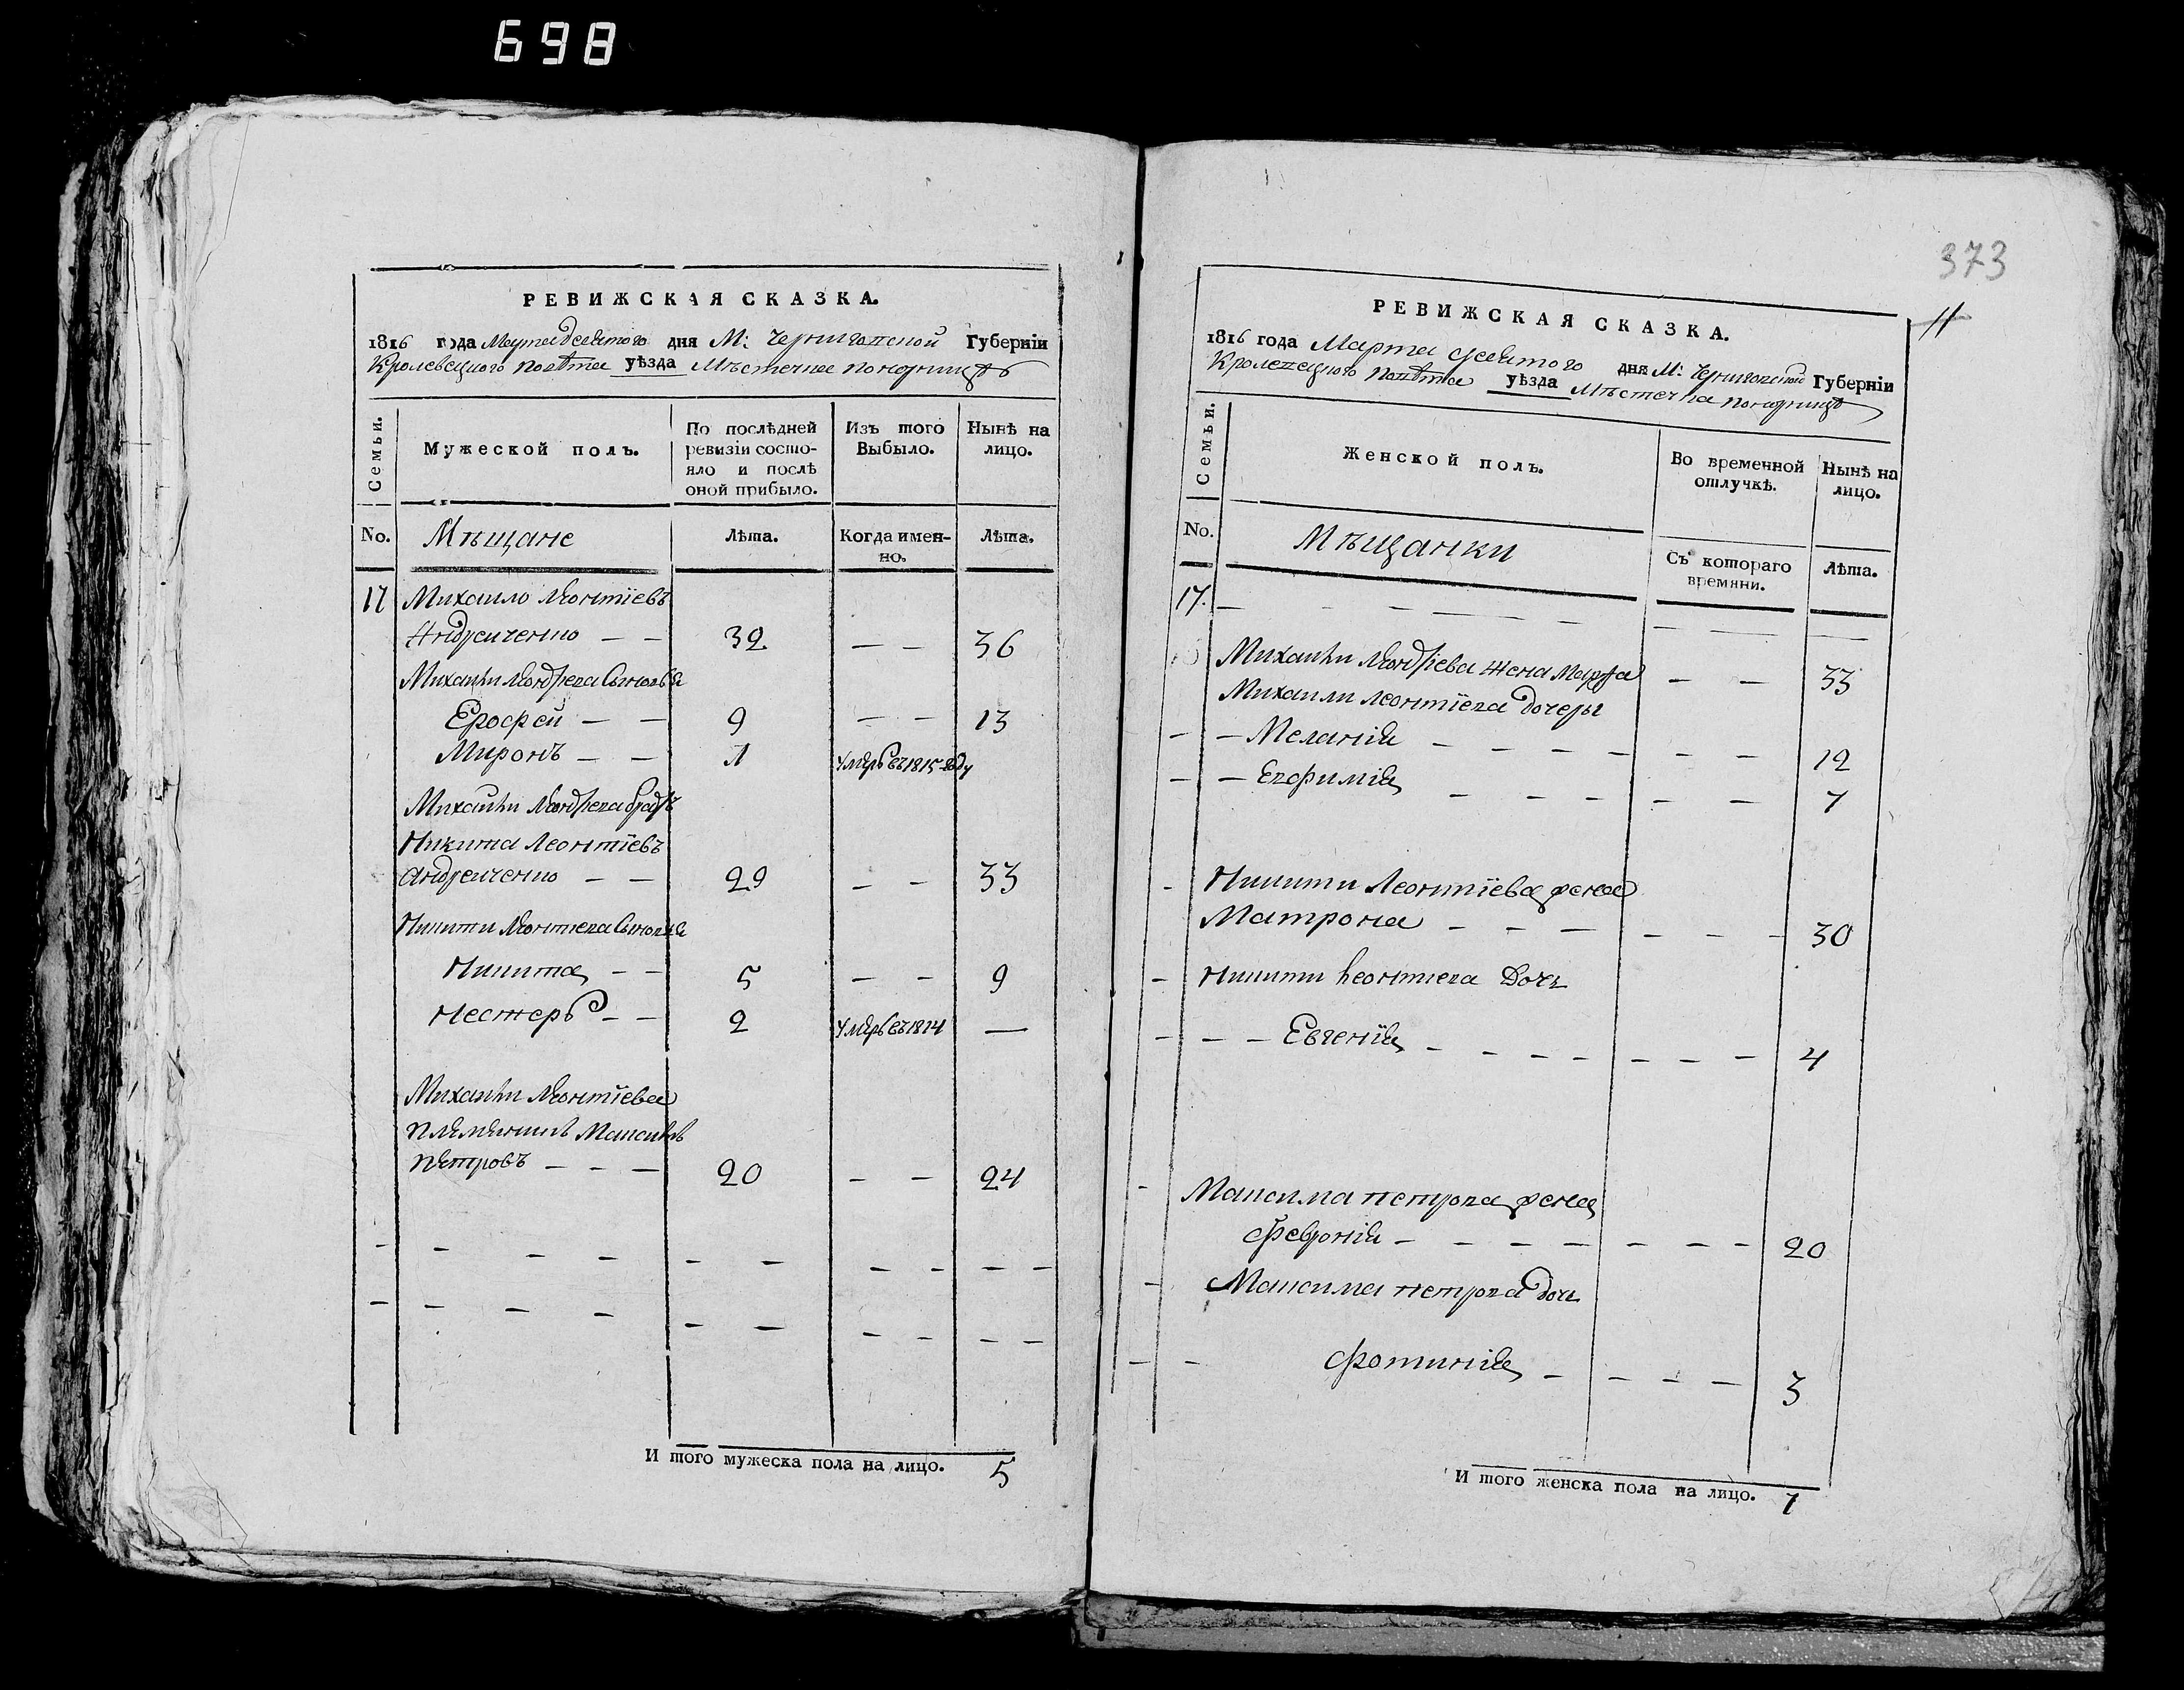 698
РЕВИЖСКАЯ СКАЗКА.
1816 года Марта девятого дня М: Черниговской Губернiи
Кролевецкого повѣта уѣзда Мѣстечка Понорницѣ
Семьи.
Мужеской полъ.
По послѣдней ревизiи состояло и послѣ оной прибыло.
Изъ того Выбыло.
Нынѣ на лицо.
No.
Мѣщане
Лѣта.
Когда именно.
Лѣта.
17 Михайло Леонтїевъ
Андрейченко — — 32 — — 36
Михайли Леонтїева Сыновья
Ерофей — — 9 — — 13
Миронъ — — 1 умеръ въ 1815 году
Михайли Леонтїева братъ
Никита Леонтїевъ
Андрейченко — — 29 — — 33
Никити Леонтиева Сыновья
Никита — — 5 — — 9
Нестеръ — — 2 умеръ въ 1814 —
Михайли Леонтїева
племянникъ Максимъ
Петровъ — — — 20 — — 24
И того мужеска пола на лицо. 5
373
11
РЕВИЖСКАЯ СКАЗКА.
1816 года Марта девятого дня М: Черниговской Губернiи
Кролевецкого повѣта уѣзда Мѣстечка Понорницѣ
Семьи.
Женской полъ.
Во временной отлучкѣ.
Нынѣ на лицо.
No.
Мѣщанки
Съ котораго времяни.
Лѣта.
17. —
Михайли Леонтїева жена Марфа — — 33
Михаили Леонтїева дочеры
— — Меланiя — — — — — — 12
— — Евфимiя — — — — — 7
— Никити Леонтїева жена
Матрона — — — — — — 30
— Никити Леонтиева Дочь
— — — Евгенїя — — — — — — — 4
— Максима Петрова жена
Февронiя — — — — — — — 20
— Максима Петрова дочь
— — Фотинiя — — — — 3
И того женска пола на лицо. 7